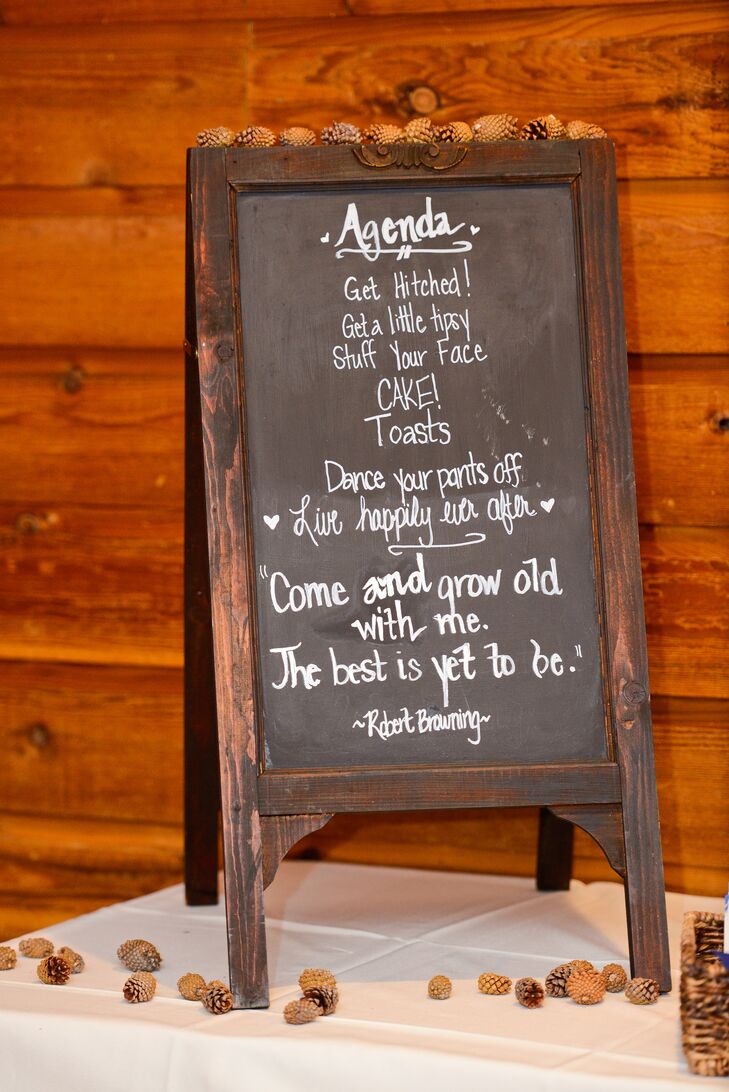 Agenda
Get Hitched!
Get a little tipsy
Stuff Your Face
CAKE!
Toasts
Dance your pants off
Live happily ever after
"Come and grow old
with me.
The best is yet to be."
~Robert Browning~